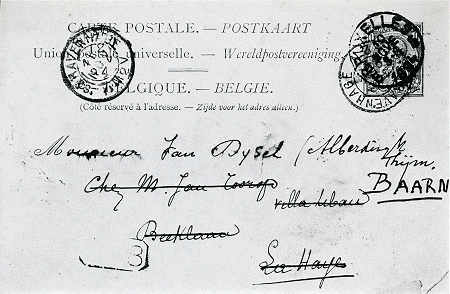 CARTE POSTALE. — POSTKAART
Union postale universelle. — Wereldpostvereeniging.
BELGIQUE. — BELGIE.
(Côté réservé à l'adresse. — Zijde voor het adres alleen.)
Monsieur Jan (Alberdingk
Thijm.
Chez M. Jan Toorop BAARN
villa
Beeklaan
3
La Haye